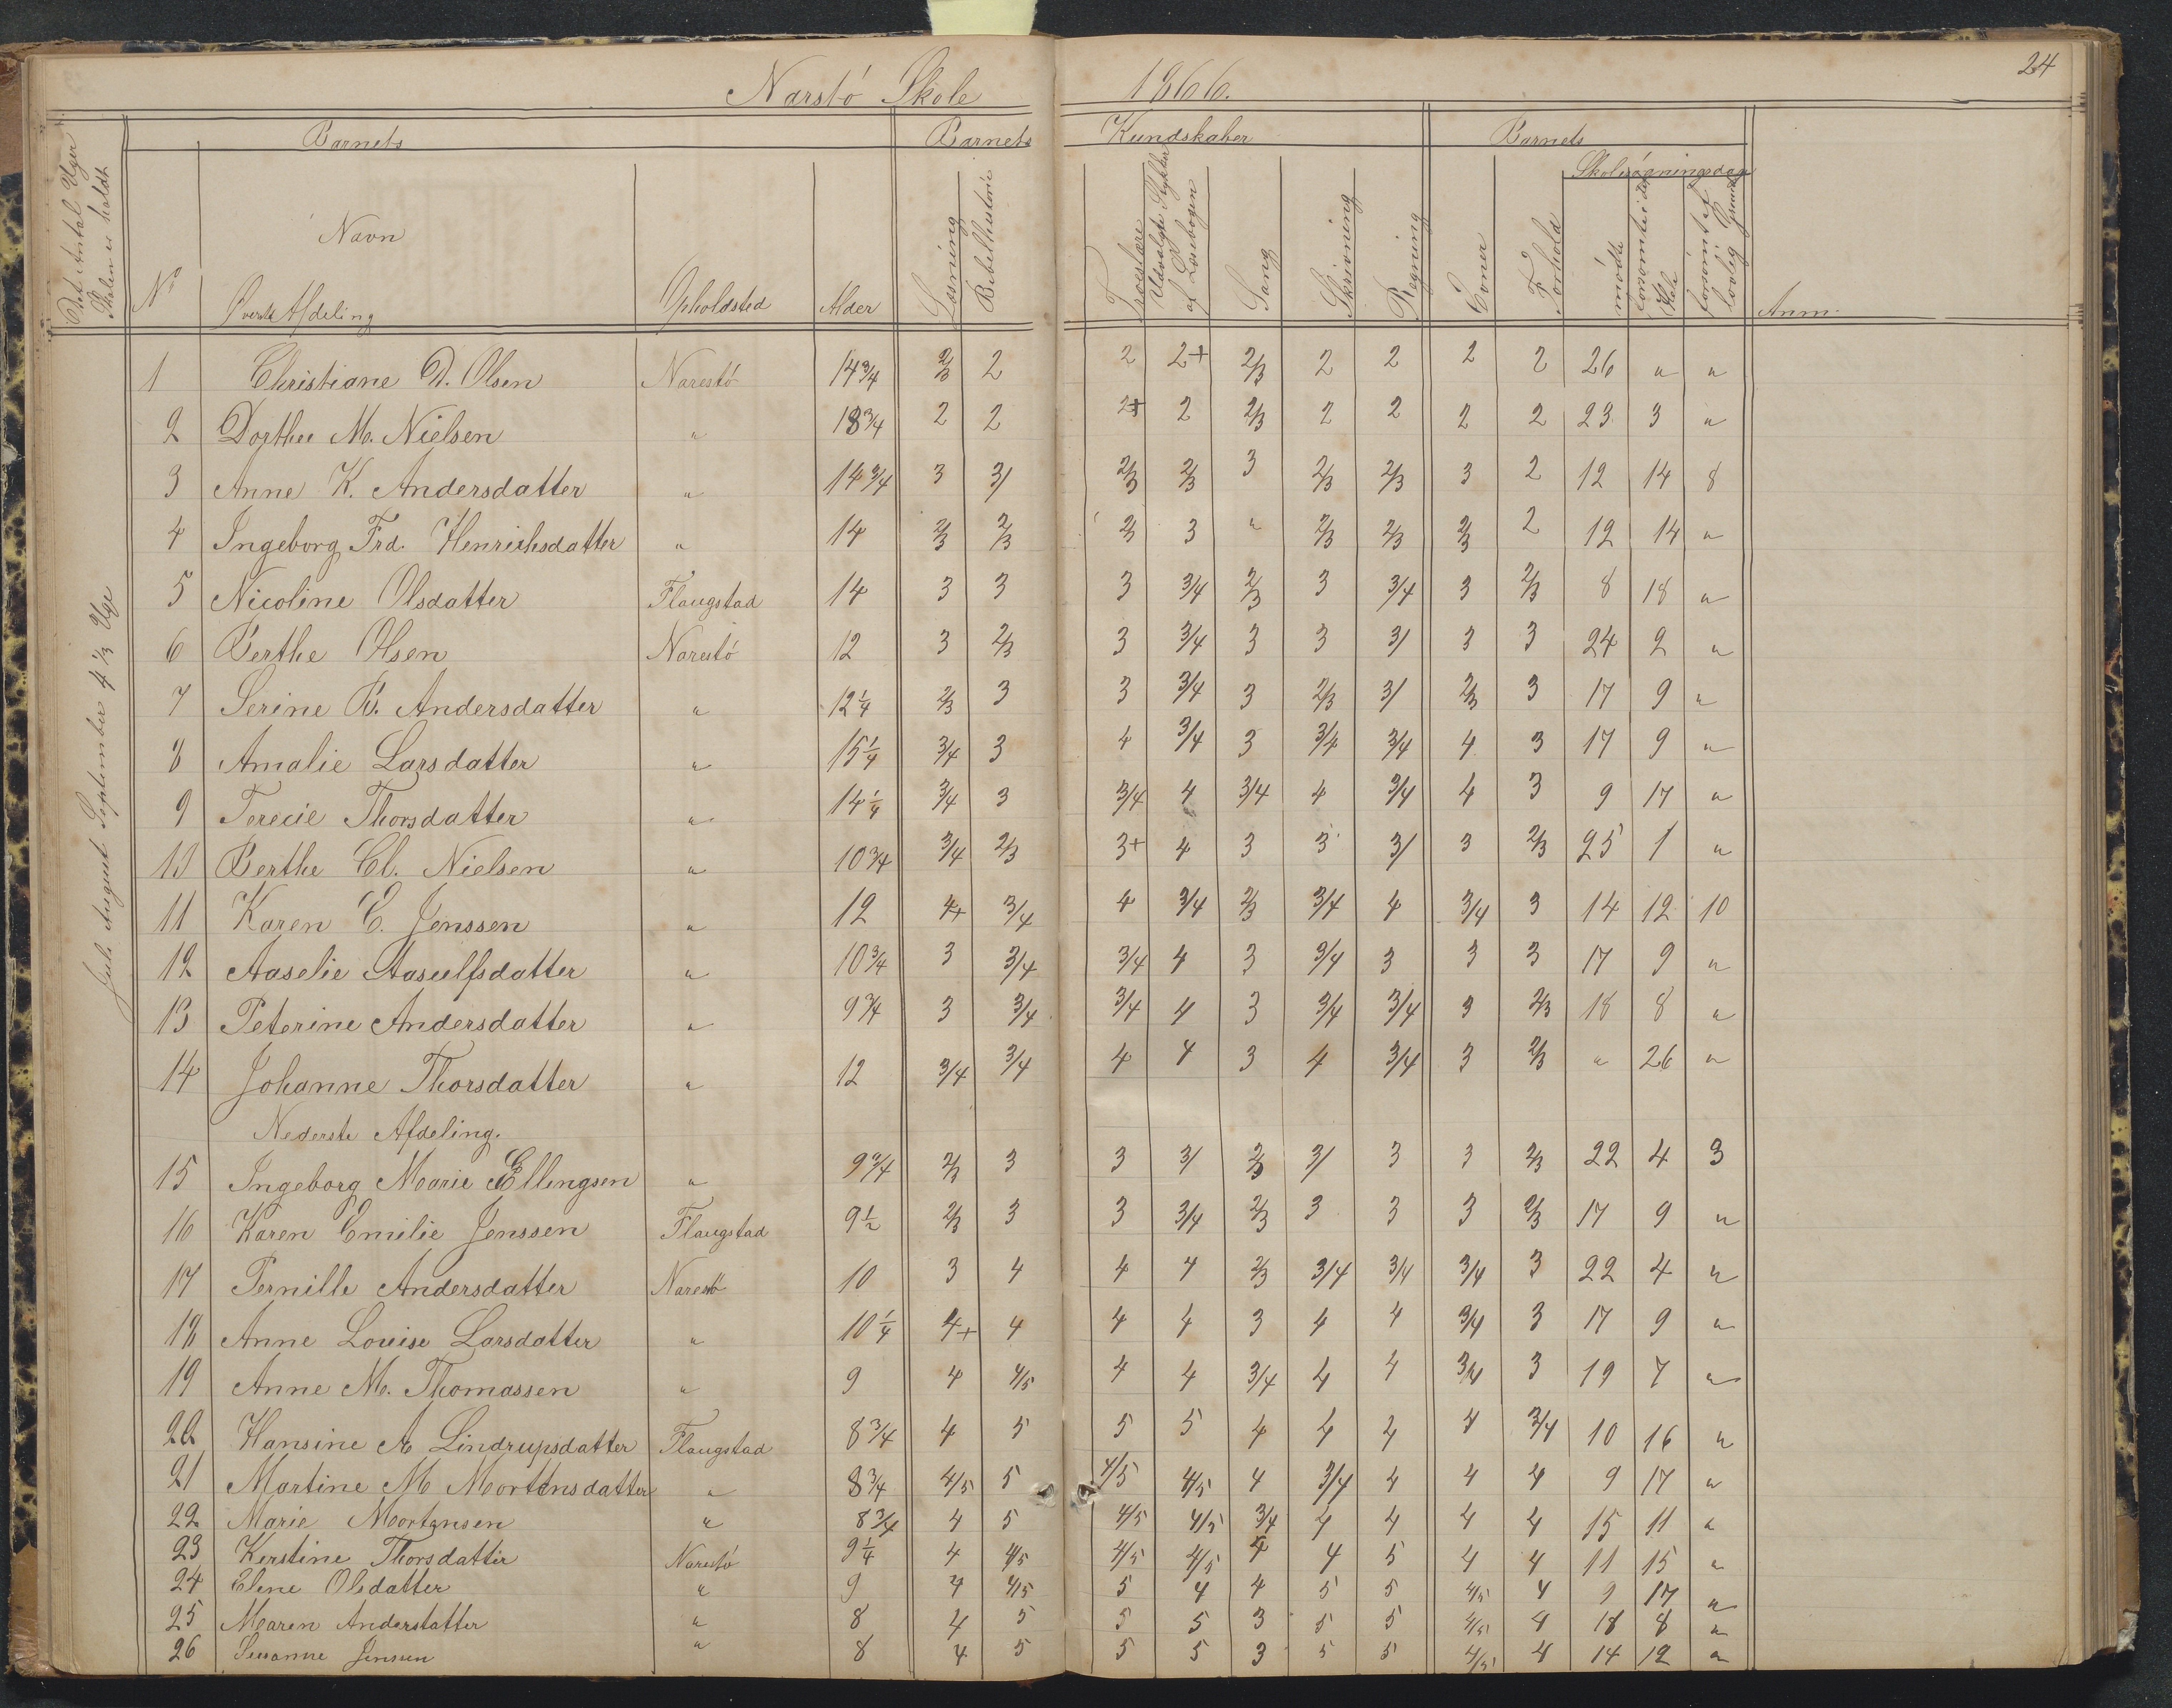 24
Narstö Skole 1866.
Barnets Barnets Kundskaber Barnets
Skolesøgningsdage
Det Antal Uger Skolen er holdt
No Navn Øverste Afdeling Opholdsted Alder Læsning Bibelhistorie Troeslære Udvalgte Stykker af Læsebogen Sang Skrivning Regning Evner Forhold mødte forsömte i det Hele forsömt af lovlig Grund Anm.
Juli August September 4 1/3 Uge
1 Christiane D. Olsen Narestö 14 3/4 2/3 2 2 2+ 2/3 2 2 2 2 26 " "
2 Dorthee M. Nielsen " 13 3/4 2 2 2+ 2 2/3 2 2 2 2 23 3 "
3 Anne K. Andersdatter " 14 3/4 3 3/ 2/3 2/3 3 2/3 2/3 3 2 12 14 8
4 Ingeborg Frd. Henrichsdatter " 14 2/3 2/3 2/3 3 " 2/3 2/3 2/3 2 12 14 "
5 Nicoline Olsdatter Flaugstad 14 3 3 3 3/4 2/3 3 3/4 3 2/3 8 18 "
6 Berthe Olsen Narestö 12 3 2/3 3 3/4 3 3 3/ 3 3 24 2 "
7 Serine B. Andersdatter " 12 1/4 2/3 3 3 3/4 3 2/3 3/ 2/3 3 17 9 "
8 Amalie Larsdatter " 15 1/4 3/4 3 4 3/4 3 3/4 3/4 4 3 17 9 "
9 Terecie Thorsdatter " 14 1/4 3/4 3 3/4 4 3/4 4 3/4 4 3 9 17 "
10 Berthe Cl. Nielsen " 10 3/4 3/4 2/3 3+ 4 3 3 3/ 3 2/3 25 1 "
11 Karen E. Jenssen " 12 4+ 3/4 4 3/4 2/3 3/4 4 3/4 3 14 12 10
12 Aaselie Aasulfsdatter " 10 3/4 3 3/4 3/4 4 3 3/4 3 3 3 17 9 "
13 Peterine Andersdatter " 9 3/4 3 3/4 3/4 4 3 3/4 3/4 3 2/3 18 8 "
14 Johanne Thorsdatter " 12 3/4 3/4 4 4 3 4 3/4 3 2/3 " 26 "
Nederste Afdeling.
15 Ingeborg Marie Ellingsen " 9 3/4 2/3 3 3 3/ 2/3 3/ 3 3 2/3 22 4 3
16 Karen Emilie Jenssen Flaugstad 9 1/2 2/3 3 3 3/4 2/3 3 3 3 2/3 17 9 "
17 Pernille Andersdatter Narestö 10 3 4 4 4 2/3 3/4 3/4 3/4 3 22 4 "
18 Anne Louise Larsdatter " 10 1/4 4+ 4 4 4 3 4 4 3/4 3 17 9 "
19 Anne M. Thomassen " 9 4 4/5 4 4 3/4 4 4 3/4 3 19 7 "
20 Hansine A Lindrupsdatter Flaugstad 8 3/4 4 5 5 5 4 4 4 4 3/4 10 16 "
21 Martine M Mortensdatter " 8 3/4 4/5 5 4/5 4/5 4 3/4 4 4 4 9 17 "
22 Marie Mortensen " 8 3/4 4 5 4/5 4/5 3/4 4 4 4 4 15 11 "
23 Kerstine Thorsdatter Narestö 9 1/4 4 4/5 4/5 4/5 4 4 5 4 4 11 15 "
24 Elene Olsdatter " 9 4 4/5 5 4 4 5 5 4/5 4 9 17 "
25 Maren Anderstatter " 8 4 5 5 5 3 5 5 4/5 4 18 8 "
26 Susanne Jensen " 8 4 5 5 5 3 5 5 4/5 4 14 12 "